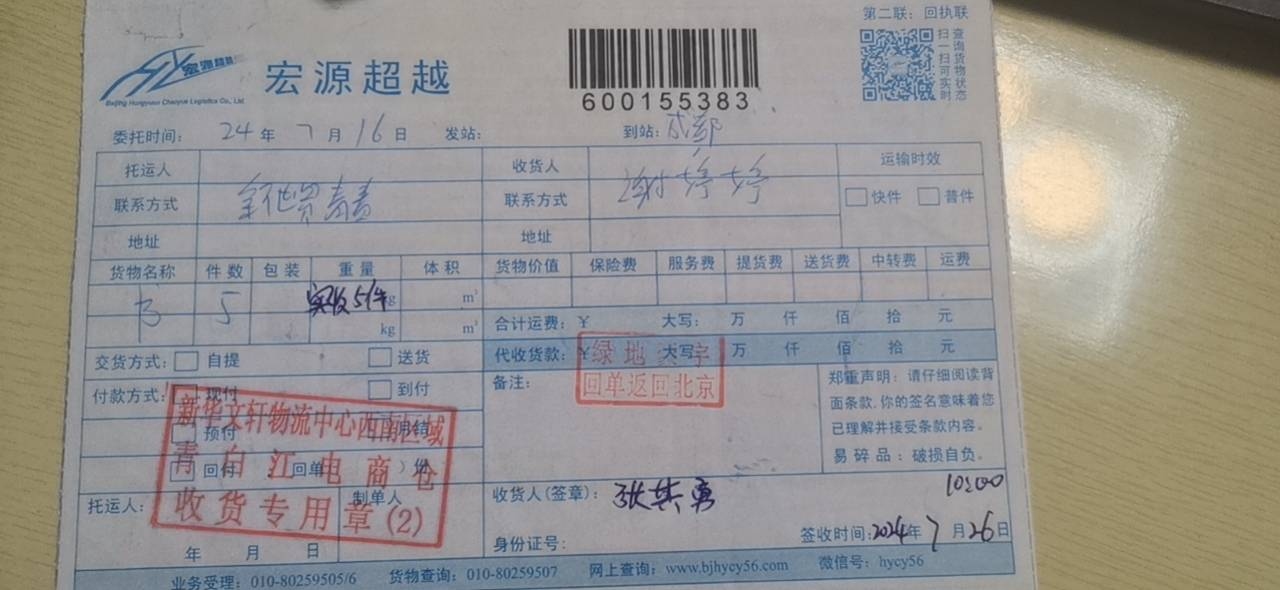 第二联：回执联
宏源超越
Beijing Hongyuan Chaoyue Logistics Co., Ltd.
宏源超越
600155383
扫一扫
查询货物实时状态
委托时间： 24年 7月 16日 发站： 到站：成都
托运人 收货人 运输时效
联系方式 联系方式 谢婷婷 快件 普件
地址 地址
货物名称 件数 包装 重量 体积 货物价值 保险费 服务费 提货费 送货费 中转费 运费
书 5 实收5件 kg m³
kg m³ 合计运费：￥ 大写： 万 仟 佰 拾 元
交货方式： 自提 送货 代收货款：￥ 大写 万 仟 佰 拾 元
绿地
回单返回北京
付款方式： 现付 到付 备注：
预付 月结
回付 回单 ）份
郑重声明：请仔细阅读背
面条款，你的签名意味着您
已理解并接受条款内容。
易碎品：破损自负。
新华文轩物流中心西南区域
青白江电商仓
收货专用章(2)
托运人： 制单人 收货人(签章)： 10:00
年 月 日 身份证号： 签收时间：2024年 7月26日
业务受理：010-80259505/6 货物查询：010-80259507 网上查询：www.bjhycy56.com 微信号：hycy56